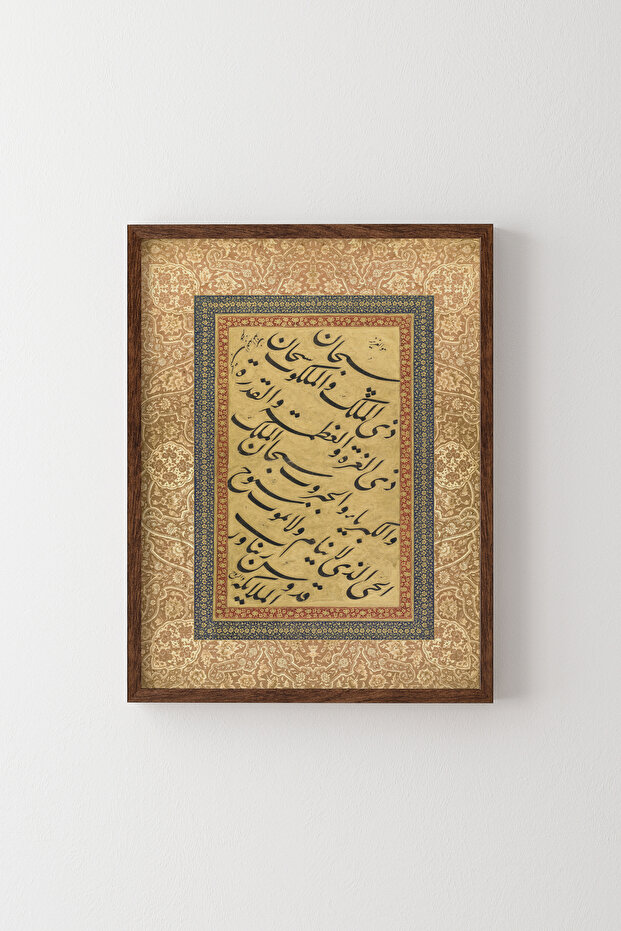 سبحان
ذی الملک والملکوت سبحان
ذی العزة والعظمة والقدرة
والکبریاء والجبروت سبحان الملک
الحی الذی لا ینام ولا یموت سبوح
قدوس ربنا ورب
الملایکة والروح